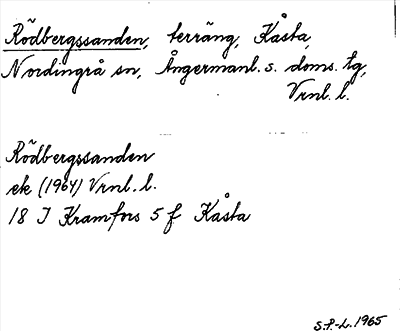 Rödbergssanden, terräng, Kåsta,
Nordingrå sn, Ångermanl. s. doms. tg,
Vrnl. l.
Rödbergssanden
ek (1964) Vrnl. l.
18 I Kramfors 5 f Kåsta
S.P.-L. 1965